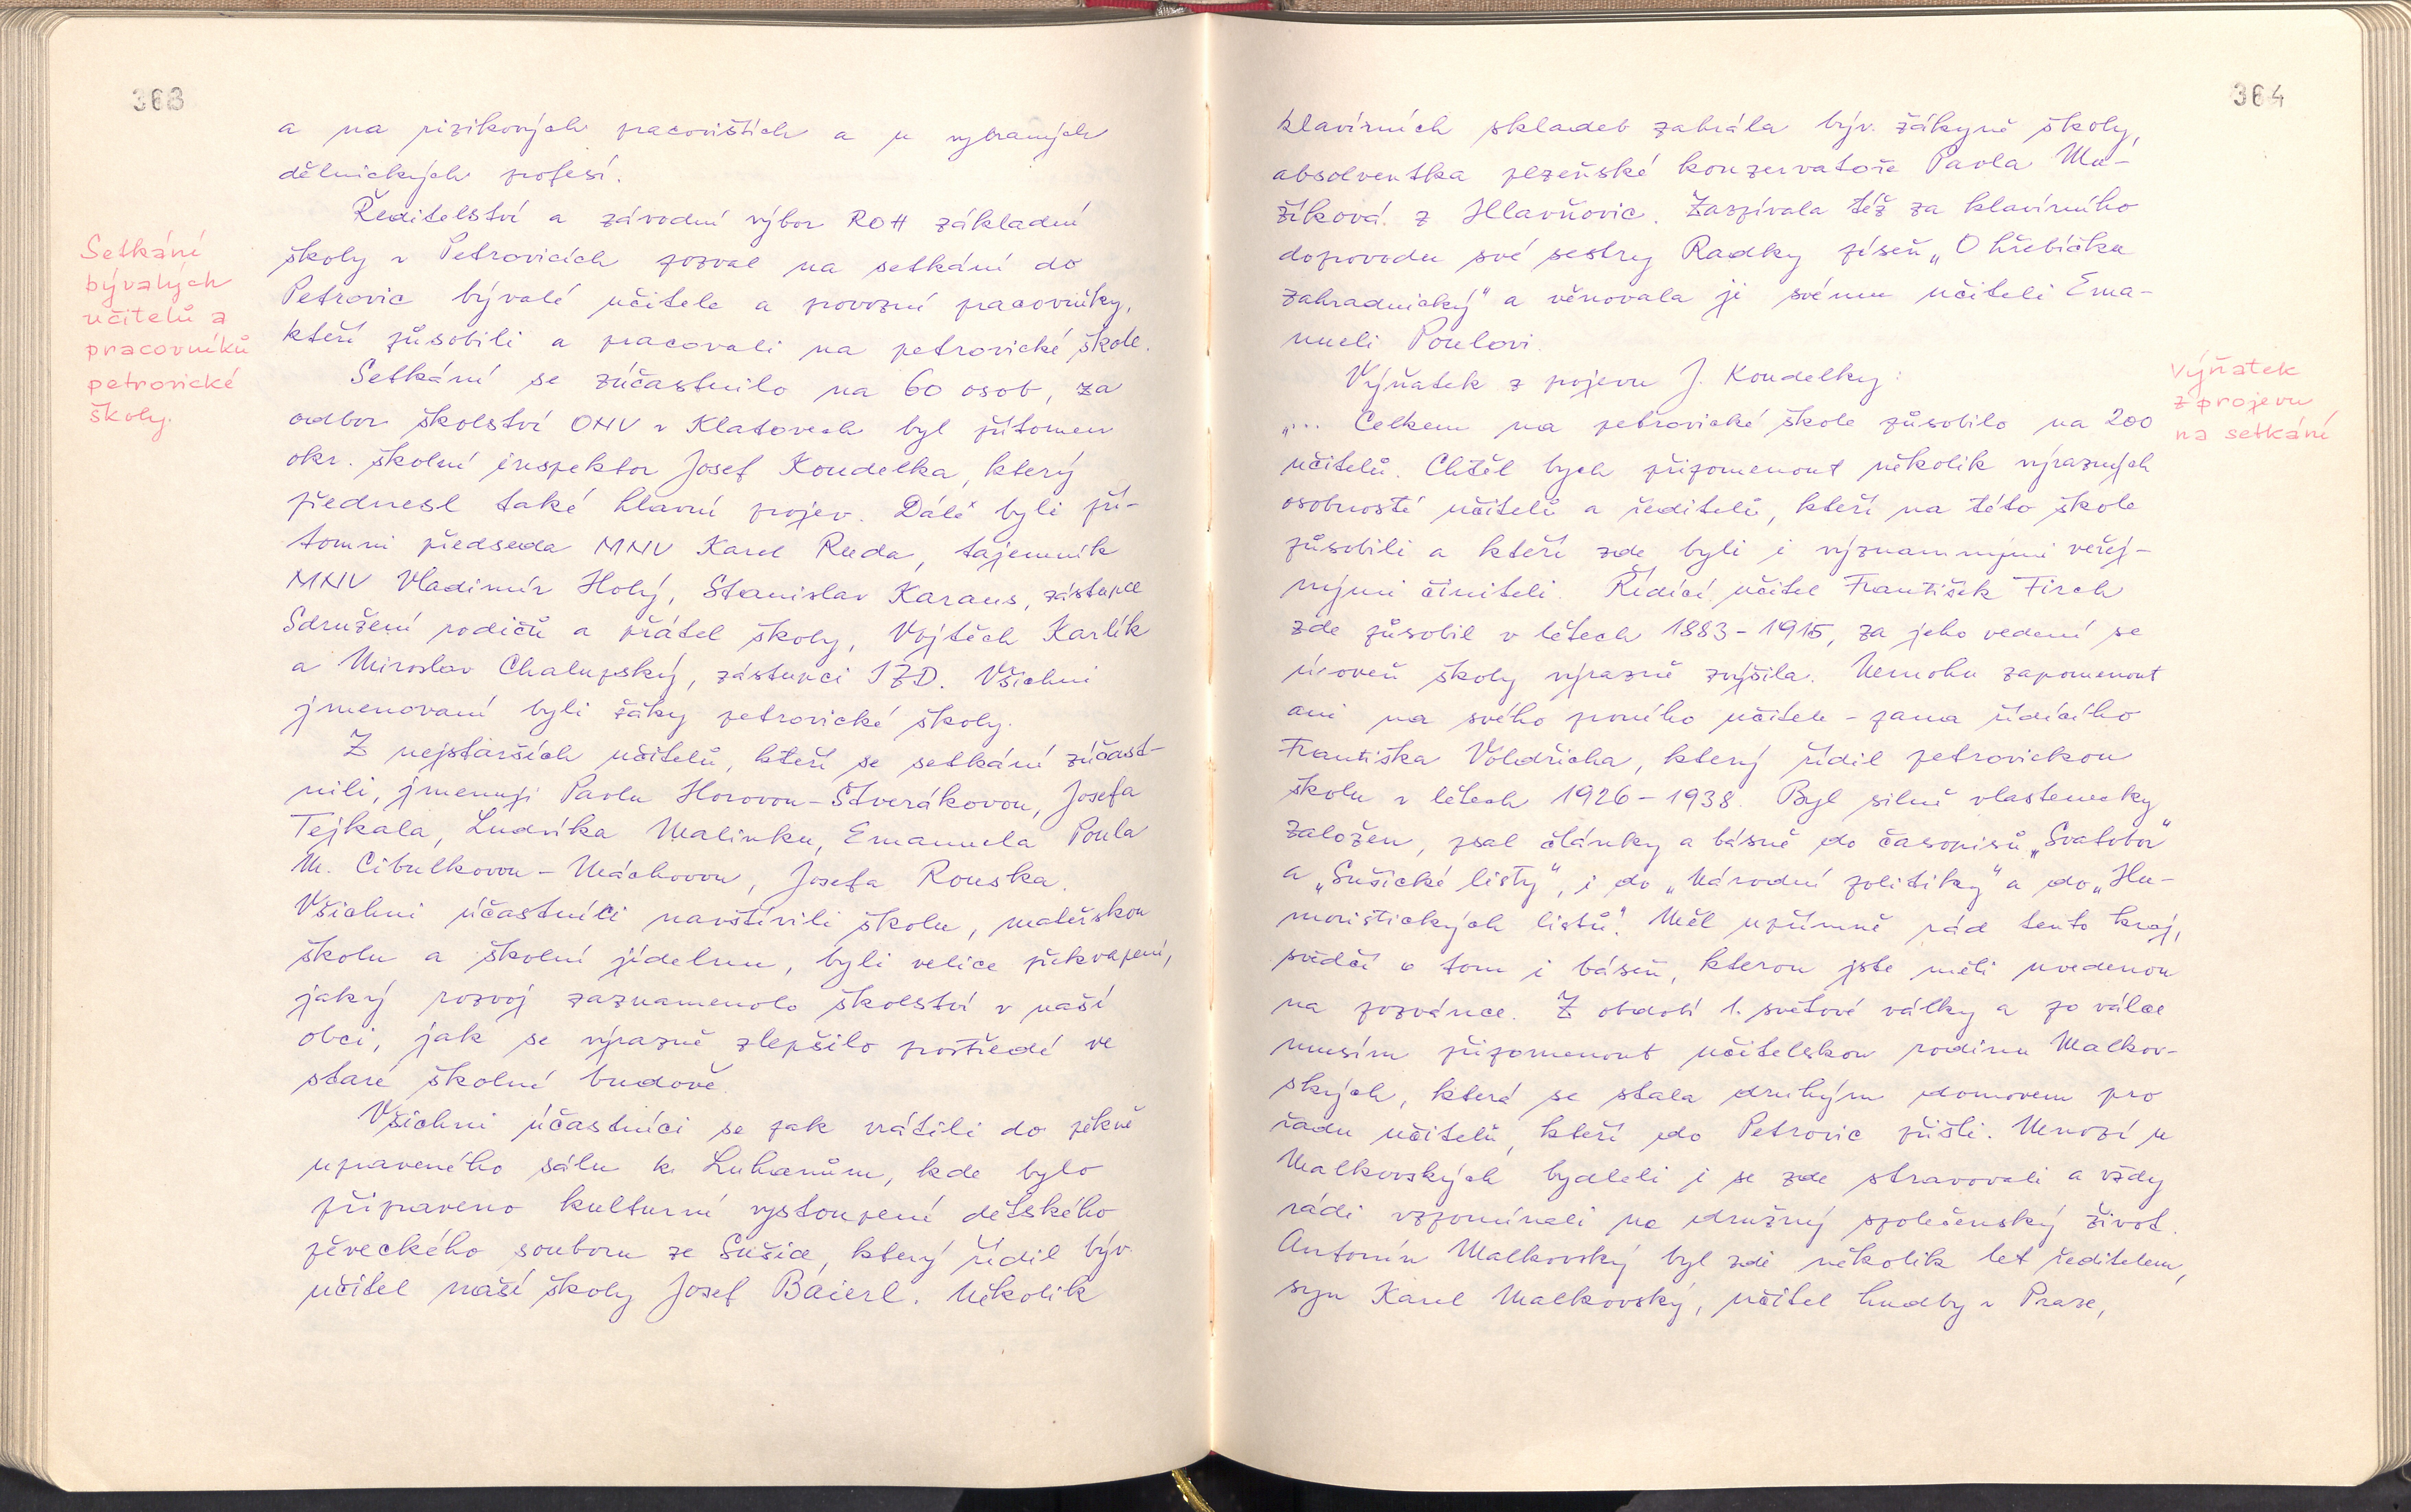 363
a na rizikových pracovištích a u vybraných
dělnických profesí.
Ředitelství a závodní výbor ROH základní
školy v Petrovicích pozval na setkání do
Petrovic bývalé učitele a provozní pracovníky,
kteří působili a pracovali na petrovické škole.
Setkání
bývalých
učitelů a
pracovníků
petrovické
školy.
Setkání se zúčastnilo na 60 osob, za
odbor školství ONV v Klatovech byl přítomen
okr. školní inspektor Josef Koudelka, který
přednesl také hlavní projev. Dále byli pří-
tomni předseda MNV Karel Ruda, tajemník
MNV Vladimír Holý, Stanislav Karaus, zástupce
Sdružení rodičů a přátel školy, Vojtěch Karlík
a Miroslav Chalupský, zástupci JZD. Všichni
jmenovaní byli žáky petrovické školy.
Z nejstarších učitelů, kteří se setkání zúčast-
nili, jmenuji Pavlu Horovou-Štverákovou, Josefa
Tejkala, Ludvíka Malinku, Emanuela Poula
M. Cibulkovou - Máchovou, Josefa Rouska.
Všichni účastníci navštívili školu, mateřskou
školu a školní jídelnu, byli velice překvapeni,
jaký rozvoj zaznamenalo školství v naší
obci, jak se výrazně zlepšilo prostředí ve
staré školní budově.
Všichni účastníci se pak vrátili do pěkně
upraveného sálu k Luhanům, kde bylo
připraveno kulturní vystoupení dětského
pěveckého souboru ze Sušice, který řídil býv.
učitel naší školy Josef Baierl. Několik
364
klavírních skladeb zahrála býv. žákyně školy,
absolventka plzeňské konzervatoře Pavla Ma-
žíková z Hlavňovic. Zazpívala též za klavírního
doprovodu své sestry Radky píseň „O hřebíčku
zahradnický" a věnovala ji svému učiteli Ema-
nueli Poulovi.
Výňatek z projevu J. Koudelky:
„... Celkem na petrovické škole působilo na 200
učitelů. Chtěl bych připomenout několik výrazných
osobností učitelů a ředitelů, kteří na této škole
působili a kteří zde byli i významnými veřej-
nými činiteli. Řídící učitel František Firch
zde působil v létech 1883-1915, za jeho vedení se
úroveň školy výrazně zvýšila. Nemohu zapomenout
ani na svého prvního učitele - pana řídícího
Františka Voldřicha, který řídil petrovickou
školu v létech 1926-1938. Byl silně vlastenecky
založen, psal články a básně do časopisů „Svatobor"
a „Sušické listy", i do „Národní politiky" a do „Hu-
moristických listů". Měl upřímně rád tento kraj,
svědčí o tom i báseň, kterou jste měli uvedenou
na pozvánce. Z období 1. světové války a po válce
musím připomenout učitelskou rodinu Malkov-
ských, která se stala druhým domovem pro
řadu učitelů, kteří do Petrovic přišli. Mnozí u
Malkovských bydleli i se zde stravovali a vždy
rádi vzpomínali na družný společenský život.
Antonín Malkovský byl zde několik let ředitelem,
syn Karel Malkovský, učitel hudby v Praze,
Výňatek
z projevu
na setkání